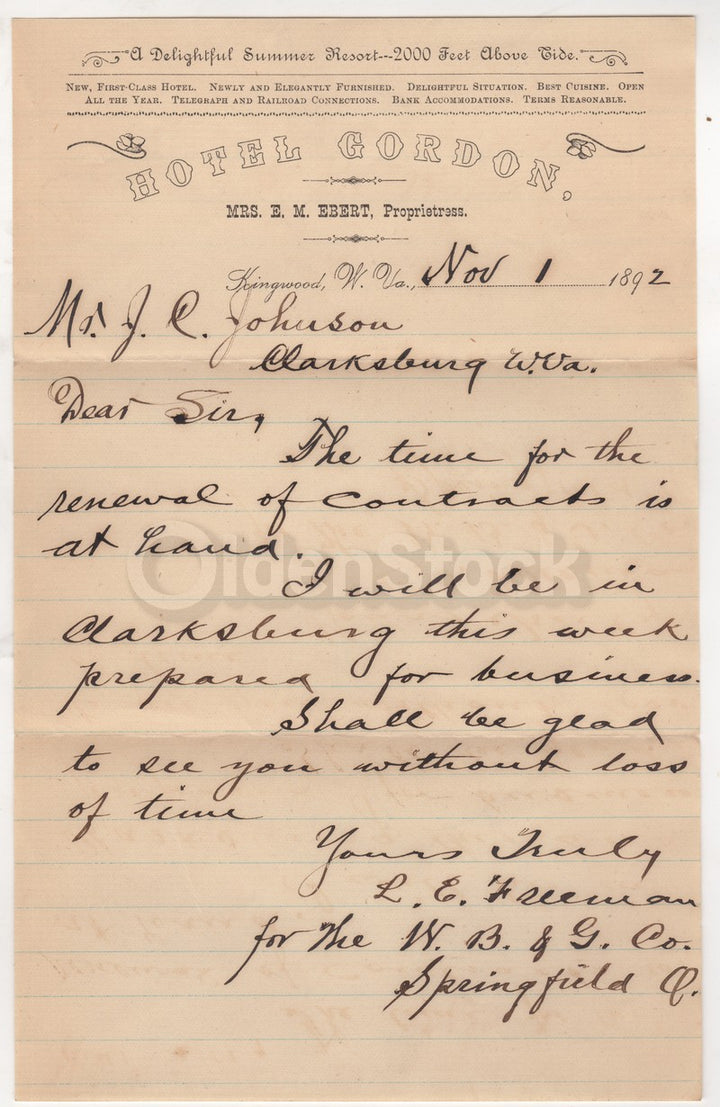 A Delightful Summer Resort---2000 Feet Above Tide.
New, First-Class Hotel. Newly and Elegantly Furnished. Delightful Situation. Best Cuisine. Open
All the Year. Telegraph and Railroad Connections. Bank Accommodations. Terms Reasonable.
HOTEL GORDON,
MRS. E. M. EBERT, Proprietress.
Kingwood, W. Va., Nov 1 1892
Mr. J. C. Johnson
Clarksburg W.Va.
Dear Sir,
The time for the
renewal of contracts is
at hand.
OldenStock
I will be in
Clarksburg this week
prepared for business.
Shall be glad
to see you without loss
of time
Yours Truly
L. E. Freeman
for The W. B. & G. Co.
Springfield O.